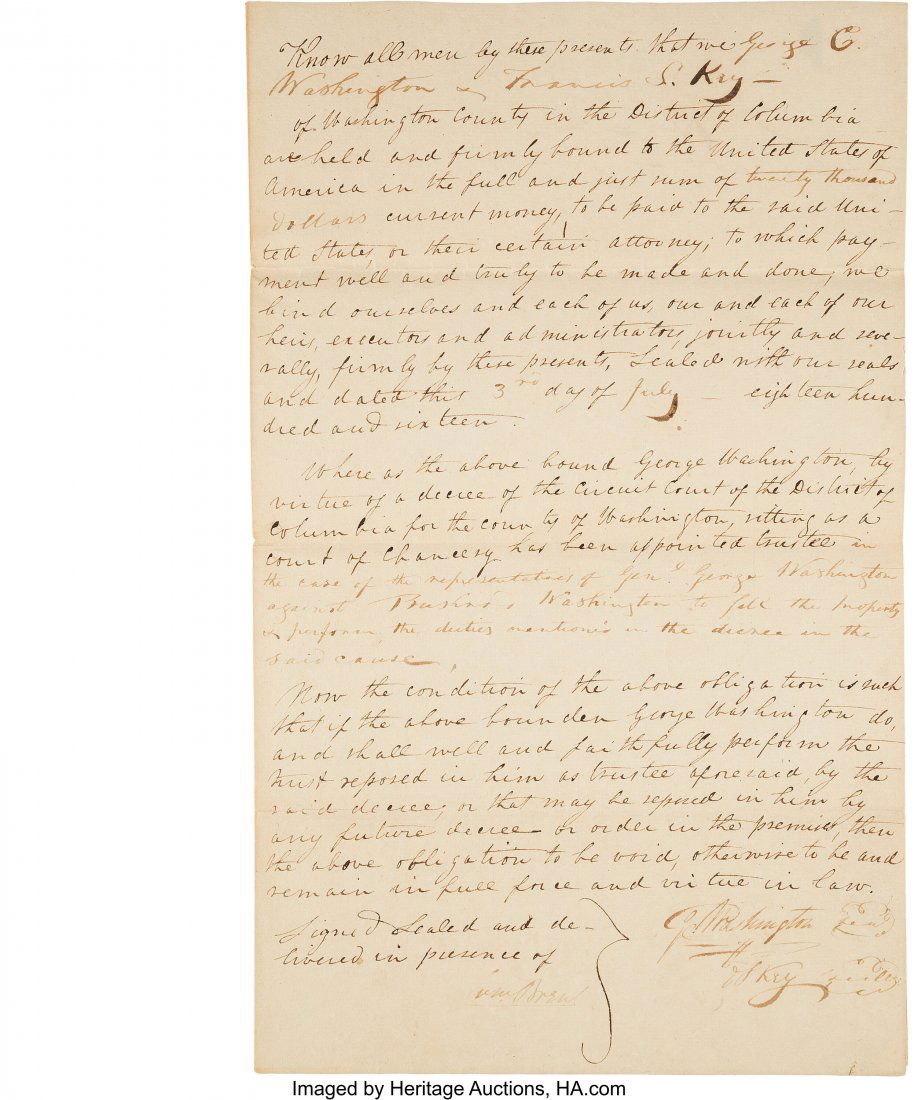 Know all men by these presents that we George C.
Washington & Francis S. Key —
of Washington County in the District of Columbia
are held and firmly bound to the United States of
America in the full and just sum of twenty thousand
Dollars current money, to be paid to the said Uni-
ted States, or their certain attorney; to which pay-
ment well and truly to be made and done, we
bind ourselves and each of us, our and each of our
heirs, executors and administrators, jointly and seve-
rally, firmly by these presents, Sealed with our seals
and dated this 3rd day of July — eighteen hun-
dred and sixteen.
Where as the above bound George Washington, by
virtue of a decree of the Circuit Court of the District of
Columbia for the county of Washington, sitting as a
court of Chancery has been appointed trustee in
the case of the representatives of Genl. George Washington
against Bushrod Washington to sell the property
& perform the duties mention'd in the decree in the
said cause,
Now the condition of the above obligation is such
that if the above bounden George Washington do,
and shall well and faithfully perform the
trust reposed in him as trustee aforesaid, by the
said decree, or that may be reposed in him by
any future decree or order in the premises, then
the above obligation to be void, otherwise to be and
remain in full force and virtue in law.
Signed Sealed and de-
livered in presence of
G. Washington Seal
F S Key Seal
Imaged by Heritage Auctions, HA.com